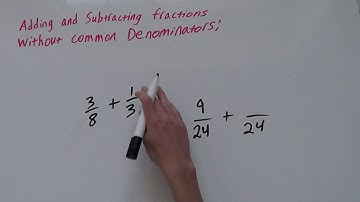 Adding and Subtracting fractions
Without common Denominators;
3/8 + 1/3 9/24 + /24